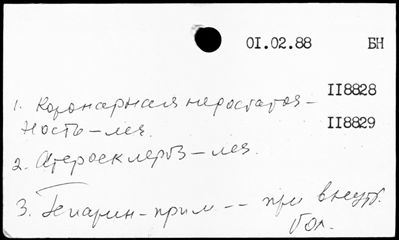 01.02.88 БН
II8828
1. Коронарная недостаточ-
II8829
ность – леч.
2. Атеросклероз – леч.
3. Гепарин – прим -- при внутр.
бол.